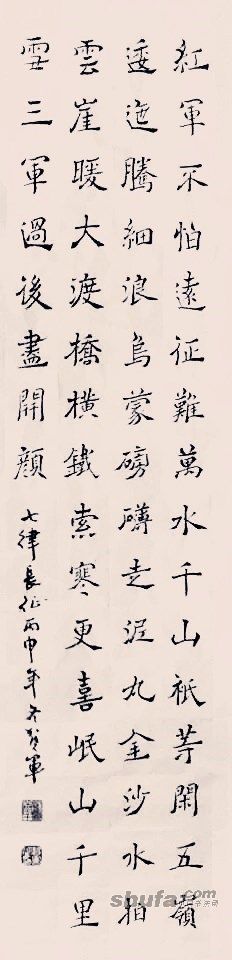 紅軍不怕遠征難萬水千山祇等閑五嶺
逶迤騰細浪烏蒙磅礴走泥丸金沙水拍
雲崖暖大渡橋橫鐵索寒更喜岷山千里
雪三軍過後盡開顏
七律長征丙申年軍
shufa.com